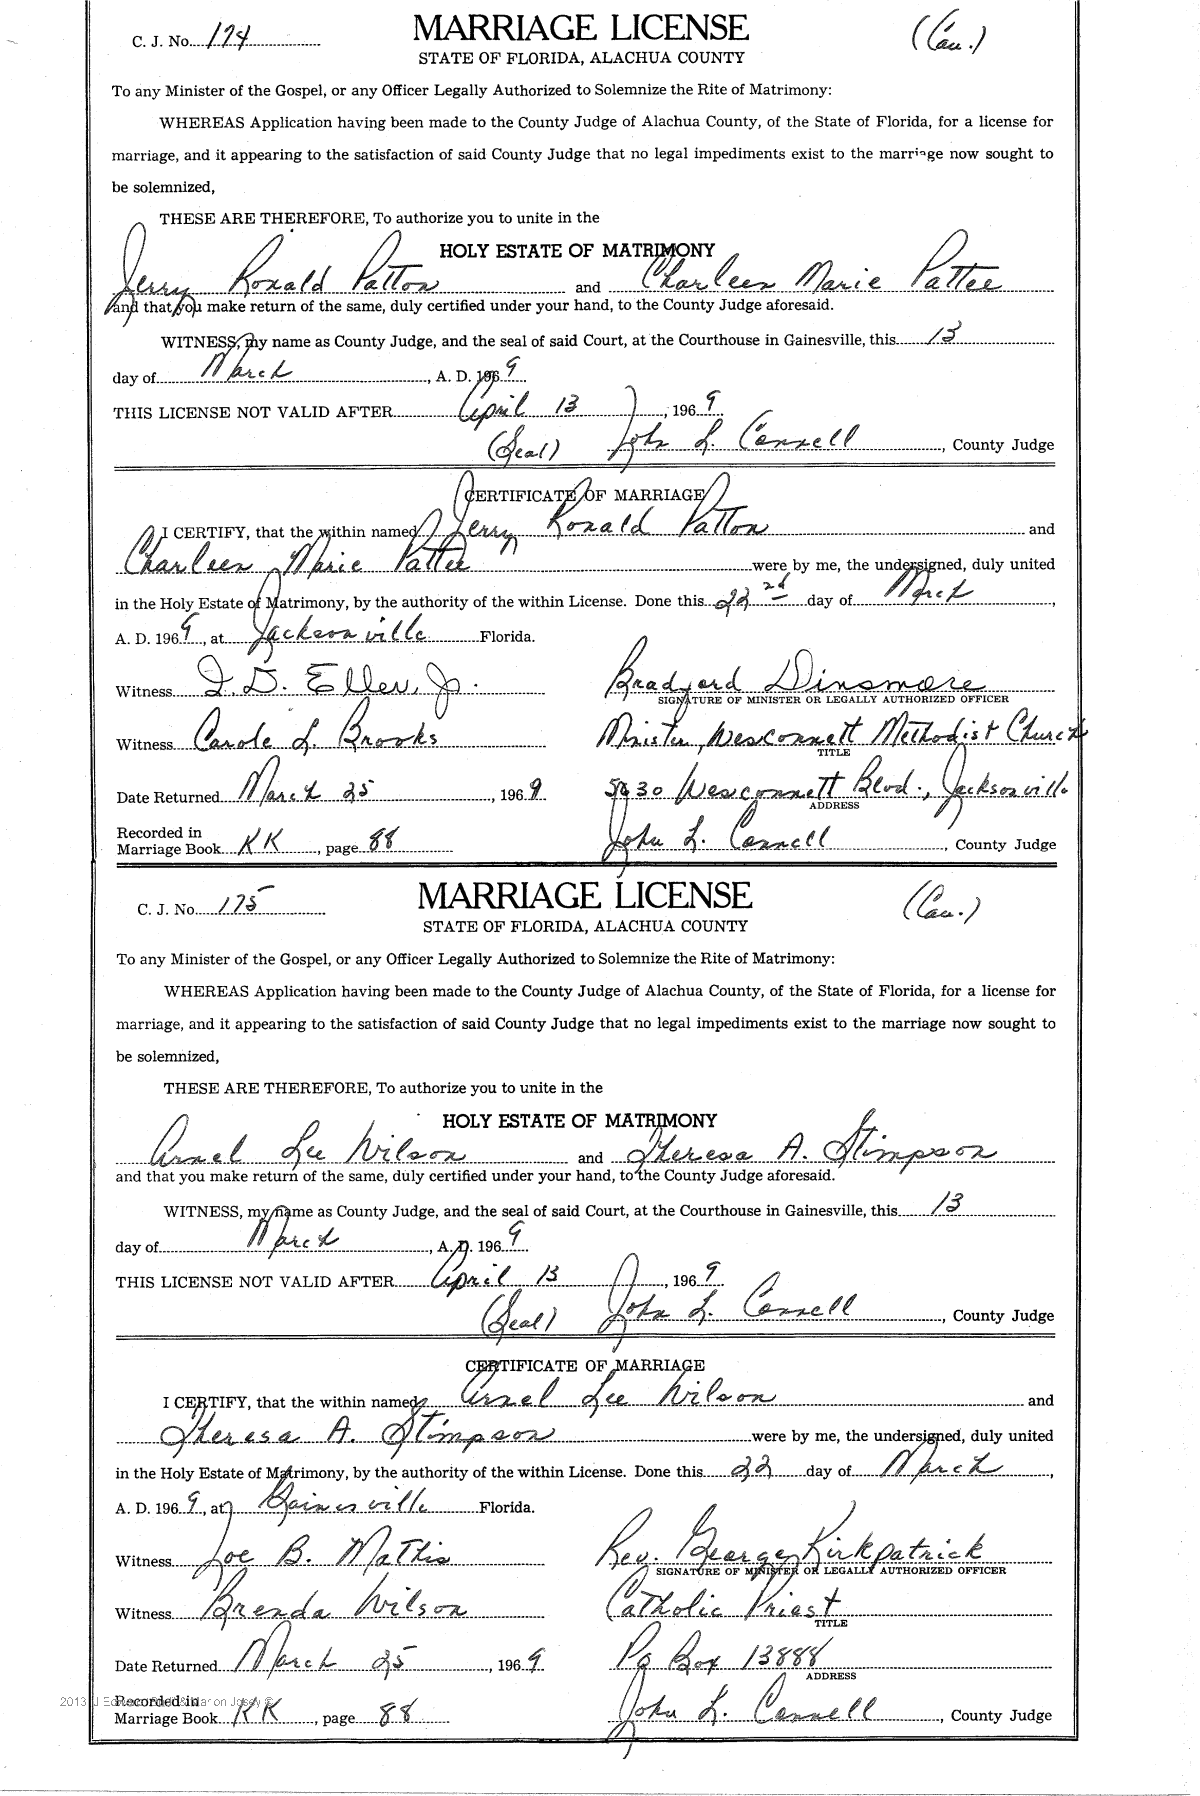 C. J. No. 174 MARRIAGE LICENSE (Cau.)
STATE OF FLORIDA, ALACHUA COUNTY
To any Minister of the Gospel, or any Officer Legally Authorized to Solemnize the Rite of Matrimony:
WHEREAS Application having been made to the County Judge of Alachua County, of the State of Florida, for a license for
marriage, and it appearing to the satisfaction of said County Judge that no legal impediments exist to the marriage now sought to
be solemnized,
THESE ARE THEREFORE, To authorize you to unite in the
HOLY ESTATE OF MATRIMONY
Jerry Ronald Patton and Charleen Marie Pattee
and that you make return of the same, duly certified under your hand, to the County Judge aforesaid.
WITNESS, my name as County Judge, and the seal of said Court, at the Courthouse in Gainesville, this 13
day of March, A. D. 1969
THIS LICENSE NOT VALID AFTER April 13, 1969
(Seal) John L. Connell, County Judge
CERTIFICATE OF MARRIAGE
I CERTIFY, that the within named Jerry Ronald Patton and
Charleen Marie Pattee were by me, the undersigned, duly united
in the Holy Estate of Matrimony, by the authority of the within License. Done this 22nd day of March,
A. D. 1969, at Jacksonville Florida.
Witness I. D. Eller, Jr. Bradford Dinsmore
SIGNATURE OF MINISTER OR LEGALLY AUTHORIZED OFFICER
Witness Carole L. Brooks Minister, Wesconnett Methodist Church
TITLE
Date Returned March 25, 1969 5630 Wesconnett Blvd., Jacksonville
ADDRESS
Recorded in
Marriage Book KK, page 88 John L. Connell, County Judge
C. J. No. 175 MARRIAGE LICENSE (Cau.)
STATE OF FLORIDA, ALACHUA COUNTY
To any Minister of the Gospel, or any Officer Legally Authorized to Solemnize the Rite of Matrimony:
WHEREAS Application having been made to the County Judge of Alachua County, of the State of Florida, for a license for
marriage, and it appearing to the satisfaction of said County Judge that no legal impediments exist to the marriage now sought to
be solemnized,
THESE ARE THEREFORE, To authorize you to unite in the
HOLY ESTATE OF MATRIMONY
Arnel Lee Wilson and Theresa A. Stimpson
and that you make return of the same, duly certified under your hand, to the County Judge aforesaid.
WITNESS, my name as County Judge, and the seal of said Court, at the Courthouse in Gainesville, this 13
day of March, A. D. 1969
THIS LICENSE NOT VALID AFTER April 13, 1969
(Seal) John L. Connell, County Judge
CERTIFICATE OF MARRIAGE
I CERTIFY, that the within named Arnel Lee Wilson and
Theresa A. Stimpson were by me, the undersigned, duly united
in the Holy Estate of Matrimony, by the authority of the within License. Done this 22 day of March,
A. D. 1969, at Gainesville Florida.
Witness Joe B. Mathis Rev. George Kirkpatrick
SIGNATURE OF MINISTER OR LEGALLY AUTHORIZED OFFICER
Witness Brenda Wilson Catholic Priest
TITLE
Date Returned March 25, 1969 Po Box 13888
ADDRESS
Recorded in
Marriage Book KK, page 88 John L. Connell, County Judge
2013